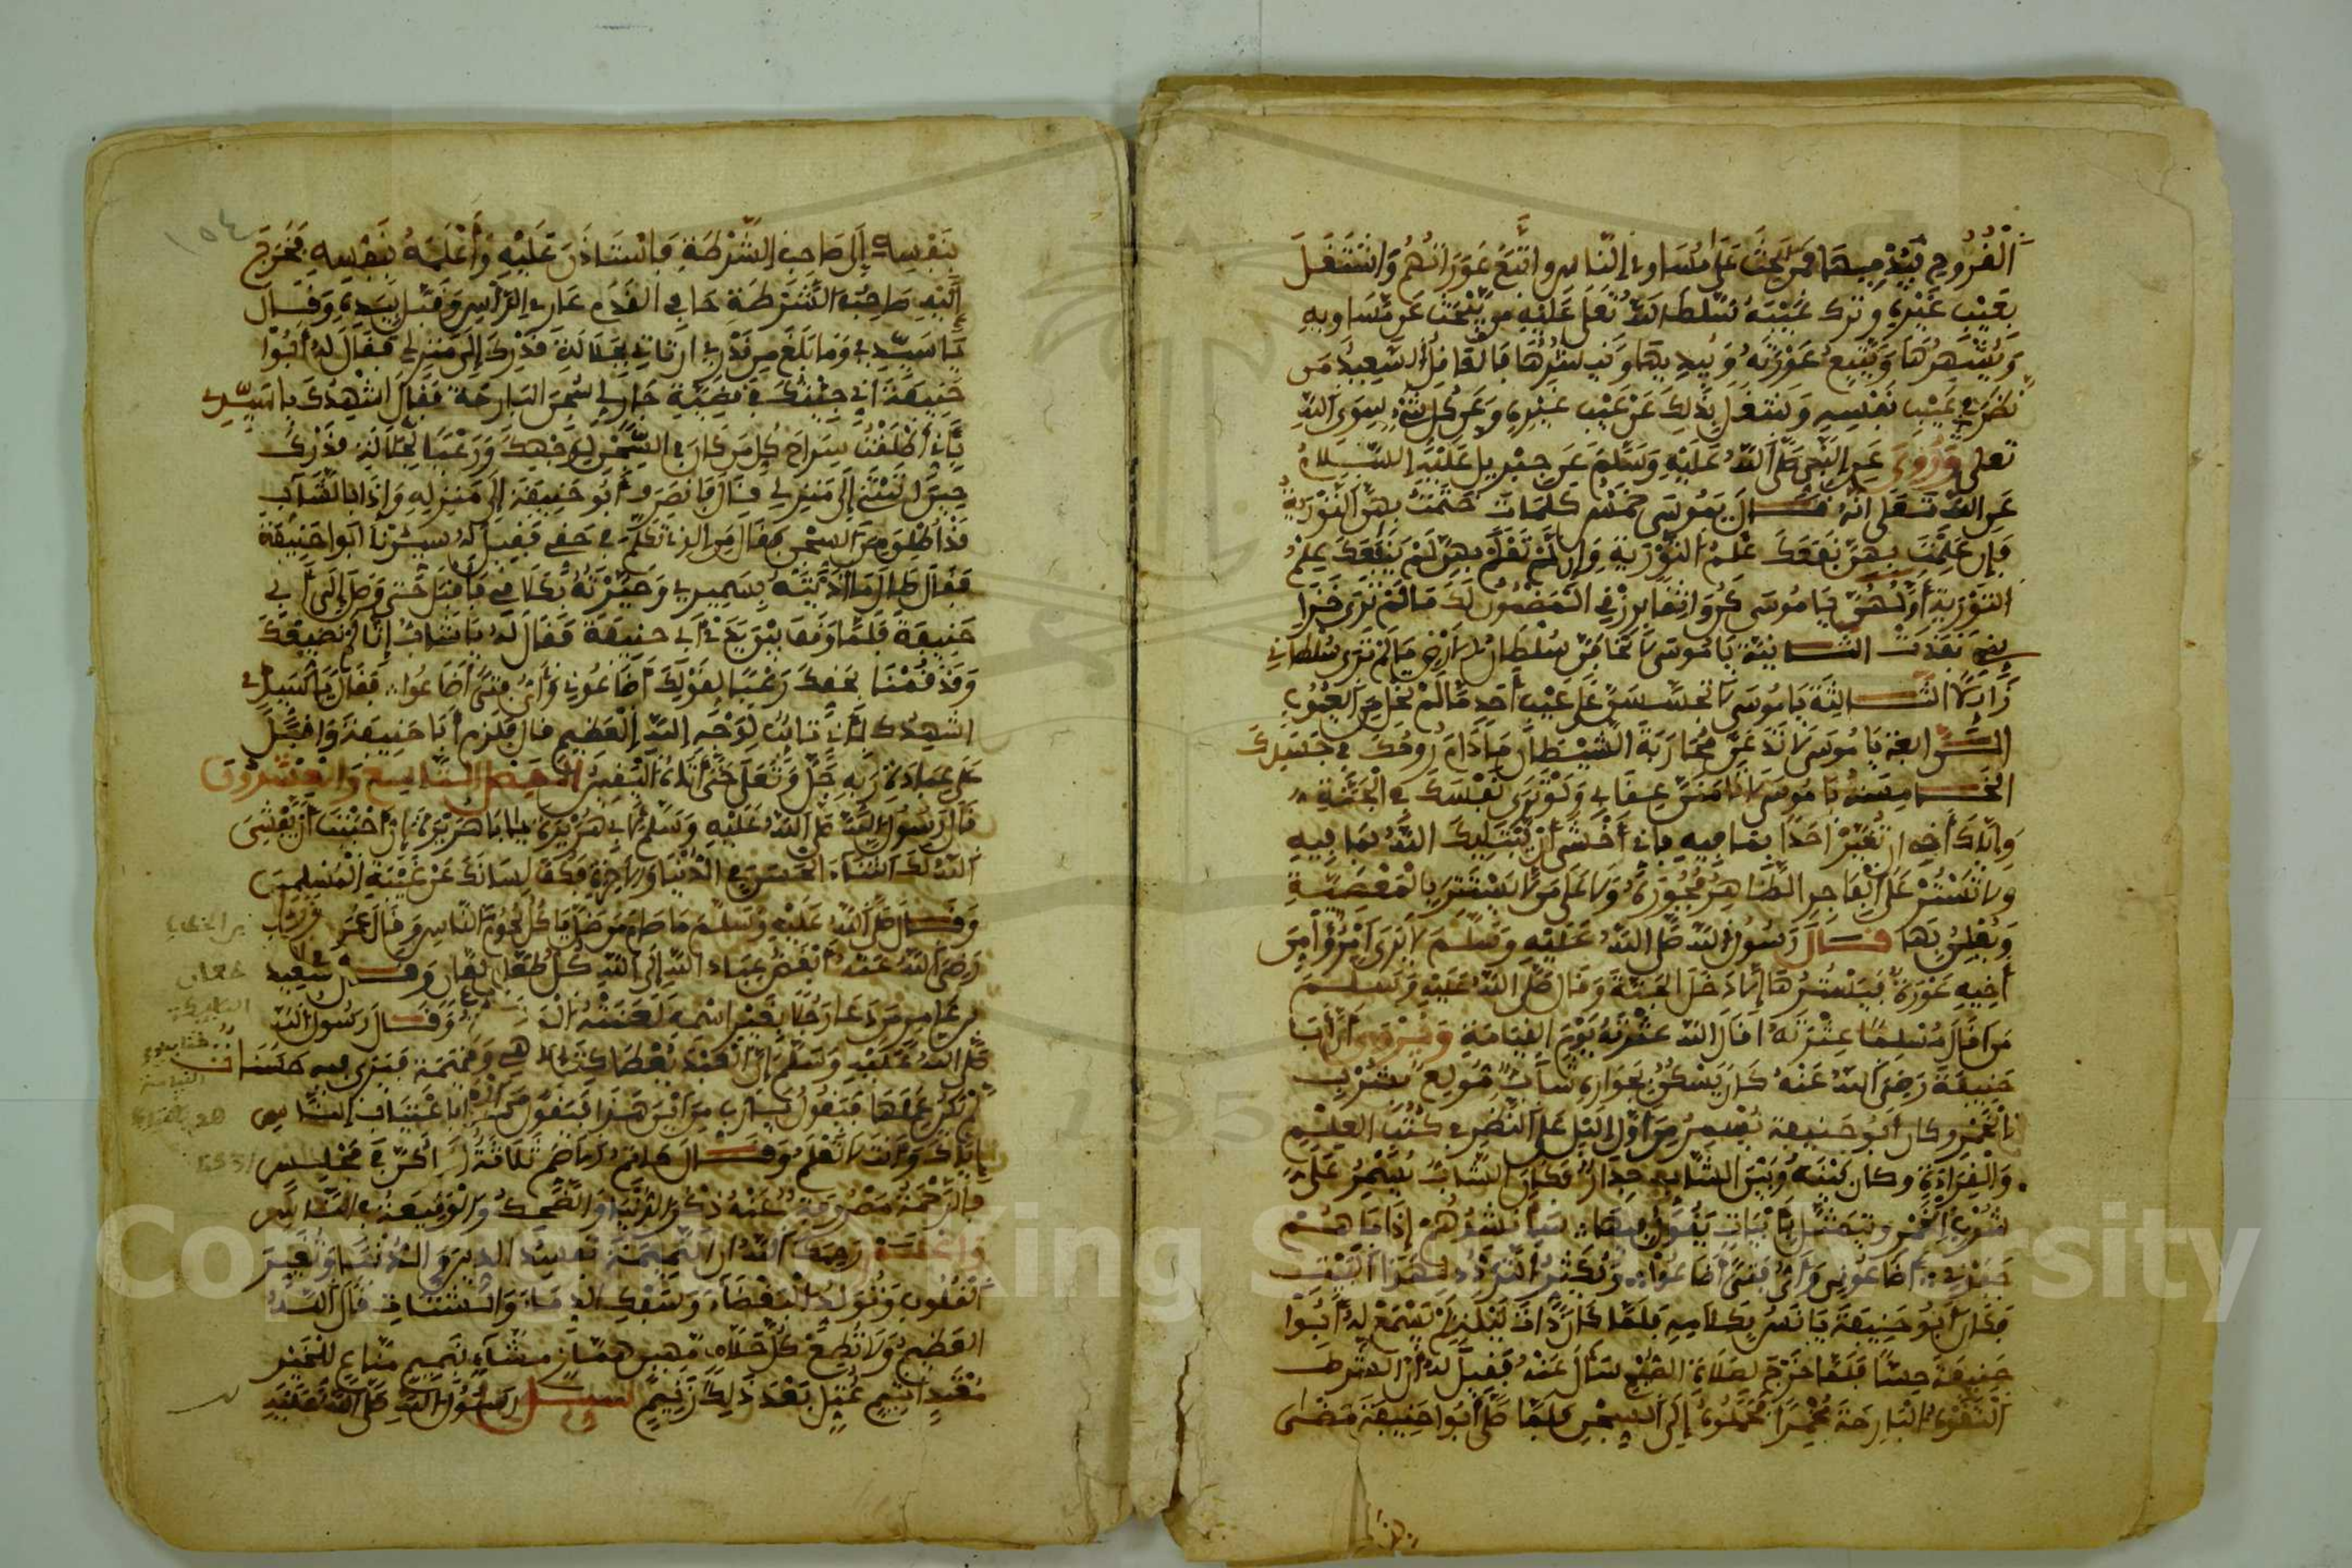 الْقُرُوحِ فَيُدْمِيهَا فَمَنْ بَحَثَ عَلَى مَسَاوِئِ النَّاسِ وَاتَّبَعَ عَوْرَاتِهُمْ وَاشْتَغَلَ
بِعَيْبِ غَيْرِهِ وترك عَيْبَهُ سَلَّطَ اللَّهُ تعلى عَلَيْهِ من يَبْحَثُ عَن مَّسَاوِيهِ
وَيُشْهِرُهَا وَيَتَّبِعُ عَوْرَتَهُ وَيُبْدِيهَا وَيَنشُرُهَا فالعَاقِلُ السَّعِيدُ مَن
نظَرَ فِي عَيْبِ نَفْسِهِ وَاشتغَلَ بِذَلِكَ عَنْ عَيْبِ غَيْرِهِ وَعَن كُلِّ شَيْءٍ سِوَى اللَّهِ
تعلى وَرُوِيَ عَنِ النَّبِي صَلَّى اللَّهُ عَلَيْهِ وَسَلَّمَ عَن جِبْرِيلَ عَلَيْهِ السَّلَامُ
عَنِ اللَّهِ تَعَلَى أنّهُ قَالَ يَمُوسَى خَمْسُ كَلِمَاتٍ خَتَمْتُ بِهِنَّ التَّوْرِيةَ
فَإِن عَلِمْتَ بِهِنَّ نَفَعَكَ عِلْمُ التَّوْرِيةِ وَإِن لَّمْ تَعْلَمْ بِهِنَّ لَمْ يَنفَعْكَ عِلْمُ
التَّوْرِيةِ أَوَّلُهُنَّ يَا مُوسَى كُن وَاثِقًا بِرِزْقِي المَضْمُون لَكَ مَا لَمْ تَرَى خَزَا
ينِي نَفَدَتْ الثَّانِيَةُ يَا مُوسَى لَا تَخَافَنَّ سُلْطَانَ الارْضِ مَا لَمْ تَرَى سُلطاني
زَايِلًا الثَّالِثَةُ يَا مُوسَى لَا تَجَسَّسَنَّ عَلَى عَيْبِ أَحَدٍ مَّا لَمْ تَخْلُ مِنَ الْعُيُوبِ
الرَّابِعَةُ يَا مُوسَى لَا تَدَعَنَّ مُحَارَبَةَ الشَّيْطَانِ مَا دَامَ رُوحُكَ فِي جَسَدِكَ
الخَامِسَةُ يَا مُوسَى لَا تَامَنَنَّ عِقَابِي وَلَوْ تَرَى نَفْسَكَ فِي الْجَنَّةِ
وَإِيَّاكَ أَخِي ان تُعَيِّرَ أَحَدًا بِمَا فِيهِ فَإِنِّي أَخْشَى أَنْ يَبْتَلِيَكَ اللَّهُ بِمَا فِيهِ
ولا تَسْتُرْ عَلَى الْفَاجِرِ الظَّاهِرِ فُجُورُهُ وَلَا عَلَى مَن لَّا يَسْتَتِرُ بِالْمَعْصِيَّةِ
وَيُعْلِنُ بِهَا قَالَ رَسُولُ اللَّهِ صَلَّى اللَّهُ عَلَيْهِ وَسَلَّمَ لَا يَرَى امْرُؤٌ مِّنَ
أَخِيهِ عَوْرَةً فَيَسْتُرُهَا إِلَّا دَخَلَ الجَنَّةَ وَقَالَ صَلَّى اللَّهُ عَلَيْهِ وَسَلَّمَ
مَن اقَالَ مُسْلِمًا عِثْرَتَهُ اقَالَ اللَّهُ عِثْرَتَهُ يَوْمَ القِيَامَةِ وَيُرْوَى أَنَّ أَبَا
حَنِيفَةَ رَضِيَ اللَّهُ عَنْهُ كَانَ يَسْكُنُ بِجَوَارِهِ شَابٌّ مُّولِعٌ بِشُرْبِ
الخَمْرِ وكان أبُو حَنِيفَةَ يُسْهِرُ مِن أَوَّلِ اللَّيْلِ عَلَى النَّظَرِ فِي كُتُبِ العِلْمِ
وَالْقِرَاءَةِ وكان بَيْنَهُ وَبَيْنَ الشَّابِّ جِدَارٌ وَكَانَ الشَّابُّ يُسْهِرُ عَلَى
شُرْبِ الْخَمْرِ وَيَتَمَثَّلُ بِأَبْيَاتٍ يَقُولُ فِيهَا سَأُنشُدُهُمْ إِذَا مَا هُمْ
جَفَوْنِي أَضَاعُونِي وَأَيَّ فَتًى أَضَاعُوا وَيُكْثِرُ التَّرَدُّدَ لِهَذَا الْبَيْتِ
فَكَانَ أَبُو حَنِيفَةَ يَانَسُ بِكَلَامِهِ فَلَمَّا كَانَ ذَاتَ لَيْلَةٍ لَمْ يَسْمَعْ لَهُ أَبُوا
حَنِيفَةَ حِسًّا فَلَمَّا خَرَجَ لِصَلَاةِ الصُّبْحِ سَأَلَ عَنْهُ فَقِيلَ لَهُ أنَّ الشُّرَطَ
الْتَقَوْهُ الْبَارِحَةَ مُخْمِرًا فَحَمَلُوهُ إِلَى السِّجْنِ فَلَمَّا صَلَّى أَبُوا حَنِيفَةَ مَضَى
بِنَفْسِهِ إِلَى صَاحِبِ الشُّرْطَةِ فَاسْتَاذَنَ عَلَيْهِ وَأَعْلَمَهُ بِنَفْسِهِ فَخَرَجَ
إِلَيْهِ صَاحِبُ الشُّرْطَةِ حَافِي القَدَمِ عَارِي الرَّأْسِ وَقَبَّلَ يَدَهُ وَقَالَ
يَا سَيِّدِي وَمَا بَلَغَ مِن قَدْرِي أن تَاتِي بِجَلَالَةِ قَدْرِكَ إِلَى مَنزِلِي فَقَالَ لَهُ أَبُوا
حَنِيفَةَ إني جِئْتُكَ فِي قَضِيَّةِ جَارٍ لِي سُجِنَ البَارِحَةَ فَقَالَ أُشْهِدُكَ يا سَيِّدِي
بِأَنِّي أَطْلَقْتُ سَرَاحَ كُلِّ مَن كَانَ فِي السِّجْنِ لِوَجْهِكَ وَرَغْبًا لِجَلَالَةِ قَدْرِكَ
حِينَ أَتَيْتَنِي إِلَى مَنزِلِي قَالَ فَانصَرَفَ أَبُو حَنِيفَةَ إِلَى مَنزِلِهِ وَإِذَا بِالشَّابِّ
قَدْ أُطْلِقَ مِنَ السِّجْنِ فَقَالَ مَنِ الذِي تَكَلَّمَ فِي حَقِّي فَقِيلَ لَهُ سَيِّدُنَا أَبُوا حَنِيفَةَ
فَقَالَ طَالَ مَا أَذَيْتُهُ بِسَمِيرِي وَحَيَّرْتُهُ بِكَلَامِي فَأَقْبَلَ حَتَّى وَصَلَ إِلَى أَبِي
حَنِيفَةَ فَلَمَّا وَقَفَ بَيْنَ يَدَيْ أَبِي حَنِيفَةَ فَقَالَ لَهُ يَا شَابُّ إِنَّا لَمْ نُضِيعْكَ
وَقَدْ قُمْنَا بِحَقِّكَ رَغْبًا لِقَوْلِكَ أَضَاعُونِي وَأَيَّ فَتًى أَضَاعُوا فَقَالَ يَا سَيِّدِي
أشهِدُكَ أَنِّي تَائِبٌ لِوَجْهِ اللَّهِ الْعَظِيمِ قال فَلَزِمَ أَبَا حَنِيفَةَ وَأقْبَلَ
عَلَى عِبَادَةِ رَبِّهِ جَلَّ وَتَعَلَى حَتَّى أَتَاهُ الْيَقِينُ الفَصْلُ التَّاسِعُ وَالْعِشْرُونَ
قَالَ رَسُولُ اللَّهِ صَلَّى اللَّهُ عَلَيْهِ وَسَلَّمَ لِأَبِي هُرَيْرَةَ يَا أَبَا هُرَيْرَةَ إِنْ أَحْبَبْتَ أَنْ يُفْشِيَ
اللَّهُ لَكَ الثَّنَاءَ الحَسَنَ فِي الدُّنْيَا وَالاخِرَةِ فَكُفَّ لِسَانَكَ عَنْ غِيبَةِ الْمُسْلِمِينَ
وَقَالَ صَلَّى اللَّهُ عَلَيْهِ وَسَلَّمَ مَا صَامَ مَن ظَلَّ يَاكُلُ لُحُومَ النَّاسِ وَقَالَ عُمَرُ
رَضِيَ اللَّهُ عَنْهُ أَبْغَضُ عِبَادِ اللَّهِ إِلَى اللَّهِ كُلُّ طَعَّانٍ لَعَّانٍ وَقَالَ سَعِيدُ
بن عَامِرٍ مَن دَعَا رَجُلًا بِغَيْرِ اسْمِهِ لَعَنَتْهُ الْمَلائكة وَقَالَ رَسُولُ اللَّهِ
صَلَّى اللَّهُ عَلَيْهِ وَسَلَّمَ إِنَّ الْعَبْدَ يُعْطَا كِتَابه فَيَرَى فيه حَسَنَات
لَمْ يَكُنْ عَمِلَهَا فَيَقُولُ يَا رَبِّ مِنْ أَيْنَ هَذَا فَيَقُولُ اغْتِيَابُ النَّاسِ
إِيَّاكَ وَأَنتَ لَا تَعْلَمُ وَقَالَ حَاتِمُ الاصَمِّ ثَلَاثَةٌ إِذَا كُنَّ فِي مَجْلِسٍ
فَالرَّحْمَةُ مَصْرُوفَةٌ عَنْهُ ذِكْرُ الدُّنْيَا وَالضَّحِكُ وَالْوَقِيعَةُ فِي النَّاسِ
رَحِمَكَ اللَّهُ أن النَّمِيمَةَ تُفْسِدُ الدِينَ وَالدُّنْيَا وَتُغَيِّرُ
الْقُلُوبَ وَتُوَلِّدُ الْبَغْضَاءَ وَسَفْكَ الدِمَاءِ وَالشَّتَاتَ قَالَ اللَّهُ
العَظِيمُ وَلَا تُطِعْ كُلَّ حَلَّافٍ مَّهِينٍ هَمَّازٍ مَّشَّاءٍ بِنَمِيمٍ مَّنَّاعٍ لِّلْخَيْرِ
مُعْتَدٍ أَثِيمٍ عُتُلٍّ بَعْدَ ذَلِكَ زَنِيمٍ سُئِلَ رَسُولُ اللَّهِ صَلَّى اللَّهُ عَلَيْهِ
١٥٤
Copyright © King Saud University
195